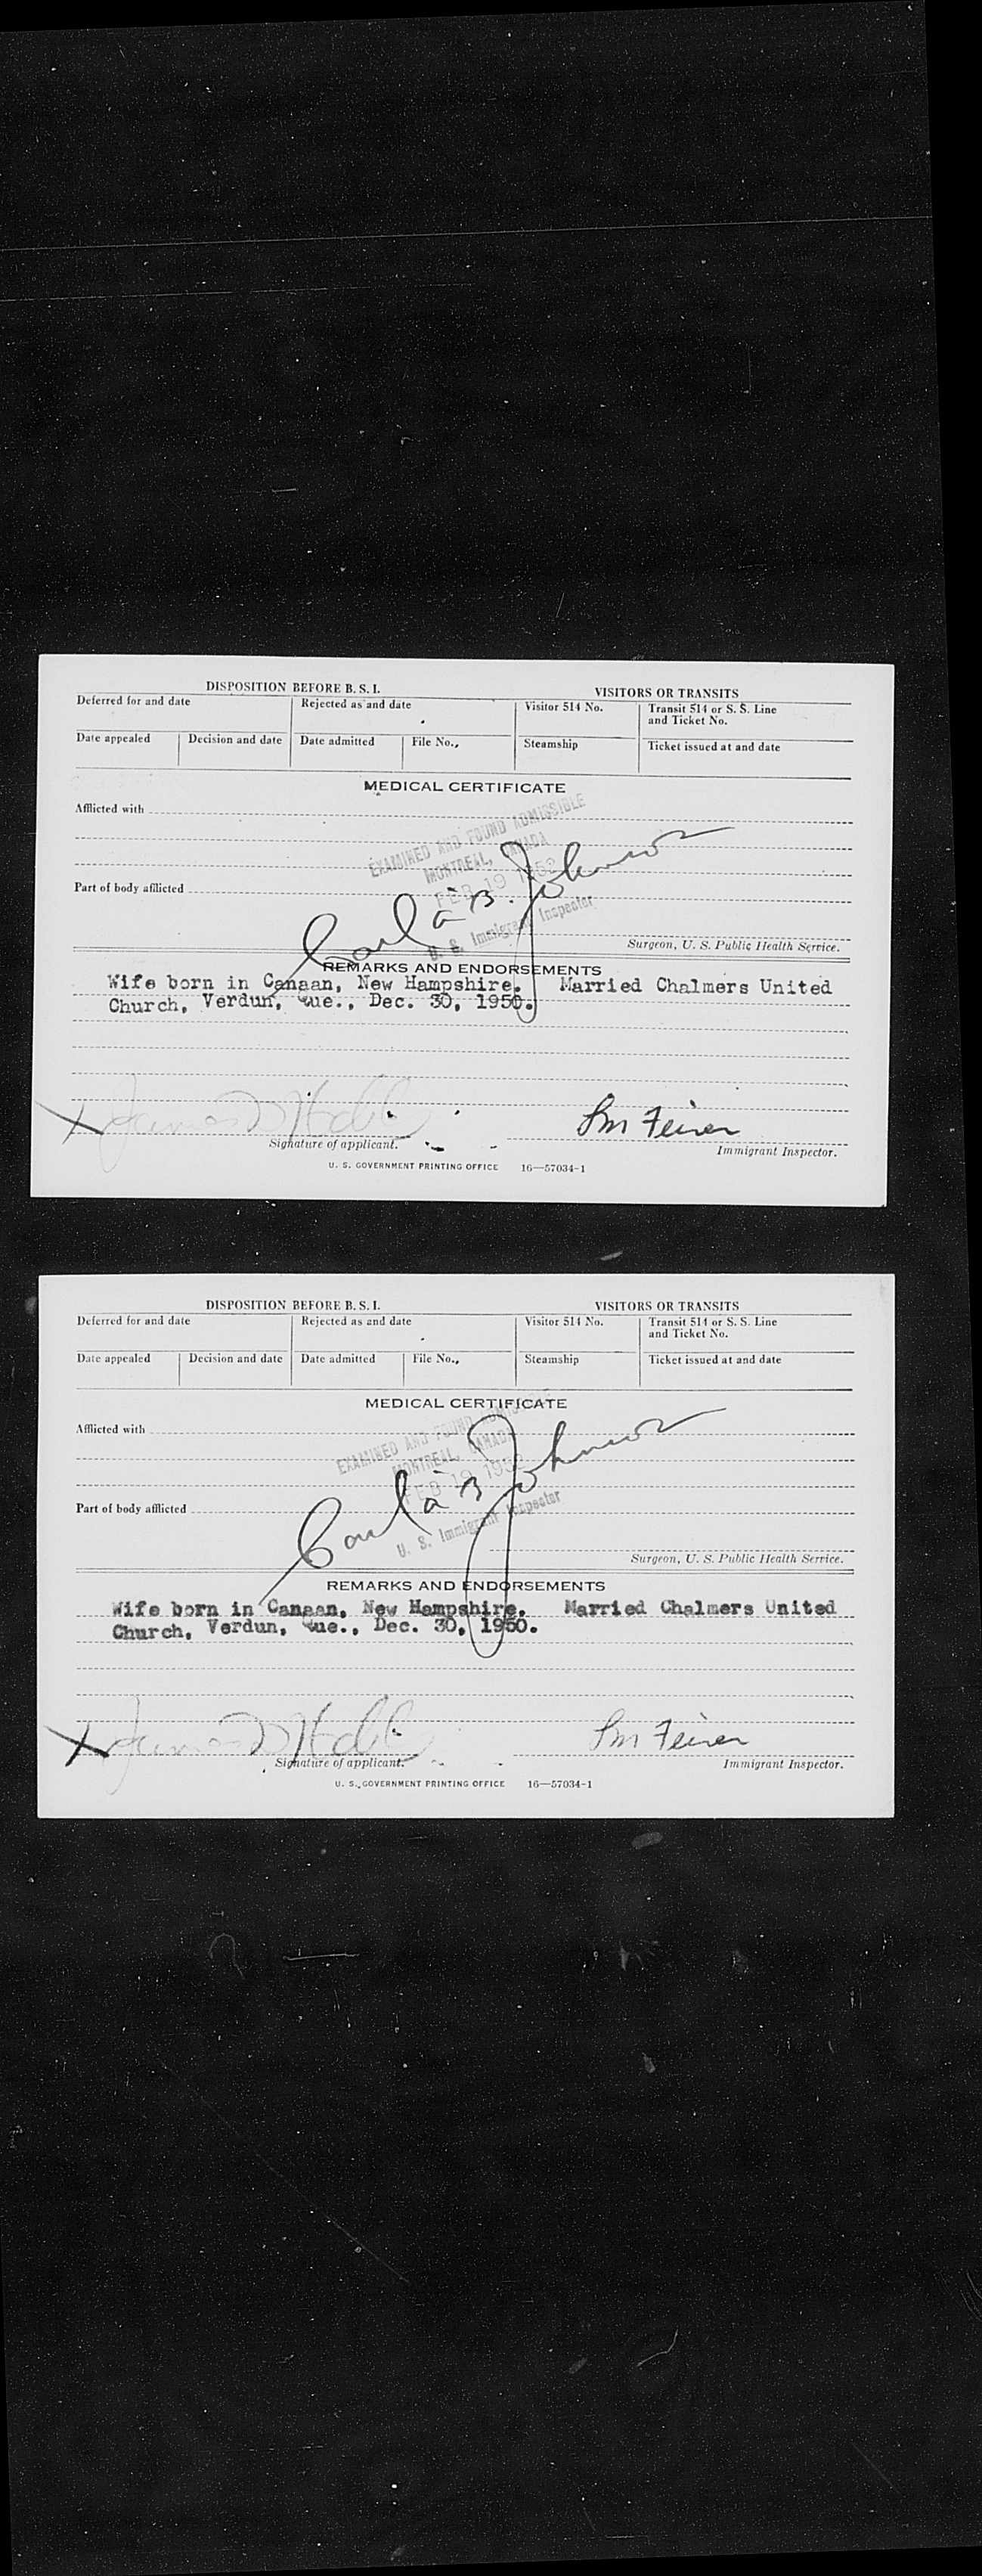 DISPOSITION BEFORE B. S. I.
VISITORS OR TRANSITS
Deferred for and date
Rejected as and date
Visitor 514 No.
Transit 514 or S. S. Line
and Ticket No.
Date appealed
Decision and date
Date admitted
File No.,
Steamship
Ticket issued at and date
MEDICAL CERTIFICATE
Afflicted with
EXAMINED AND FOUND ADMISSIBLE
MONTREAL, CANADA
FEB 19 1952
U. S. Immigrant Inspector
Part of body afflicted
Carl a B. Johnson
Surgeon, U. S. Public Health Service.
REMARKS AND ENDORSEMENTS
Wife born in Canaan, New Hampshire. Married Chalmers United
Church, Verdun, Que., Dec. 30, 1950.
X James
Feiner
Signature of applicant.
Immigrant Inspector.
U. S. GOVERNMENT PRINTING OFFICE 16—57034-1
DISPOSITION BEFORE B. S. I.
VISITORS OR TRANSITS
Deferred for and date
Rejected as and date
Visitor 514 No.
Transit 514 or S. S. Line
and Ticket No.
Date appealed
Decision and date
Date admitted
File No.,
Steamship
Ticket issued at and date
MEDICAL CERTIFICATE
Afflicted with
EXAMINED AND FOUND ADMISSIBLE
MONTREAL, CANADA
FEB 19 1952
U. S. Immigrant Inspector
Part of body afflicted
Carl a B Johnson
Surgeon, U. S. Public Health Service.
REMARKS AND ENDORSEMENTS
Wife born in Canaan, New Hampshire. Married Chalmers United
Church, Verdun, Que., Dec. 30, 1950.
X James
Feiner
Signature of applicant.
Immigrant Inspector.
U. S. GOVERNMENT PRINTING OFFICE 16—57034-1